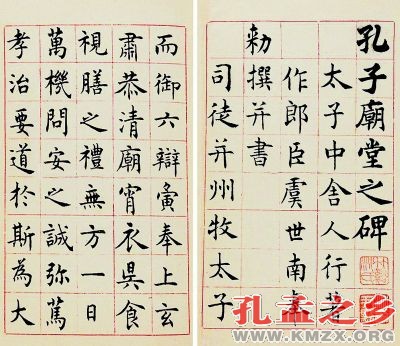 孔子廟堂之碑
太子中舍人行著
作郎臣虞世南奉
勑撰并書
司徒并州牧太子
而御六辯夤奉上玄
肅恭清廟宵衣昃食
視膳之禮無方一日
萬機問安之誠弥篤
孝治要道於斯為大
孔孟之乡
WWW.KMZX.ORG